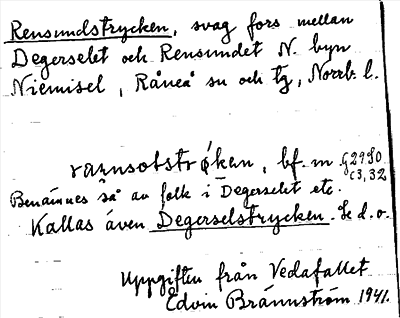 Rensundstrycken, svag fors mellan
Degerselet och Rensundet N. byn
Niemisel, Råneå sn och tg, Norrb. l.
ramsotstrøken, bf. m G2980
c3,32
Benämnes så av folk i Degerselet etc.
Kallas även Degerselstrycken. Se d.o.
Uppgiften från Vedafallet
Edvin Brännström 1941.